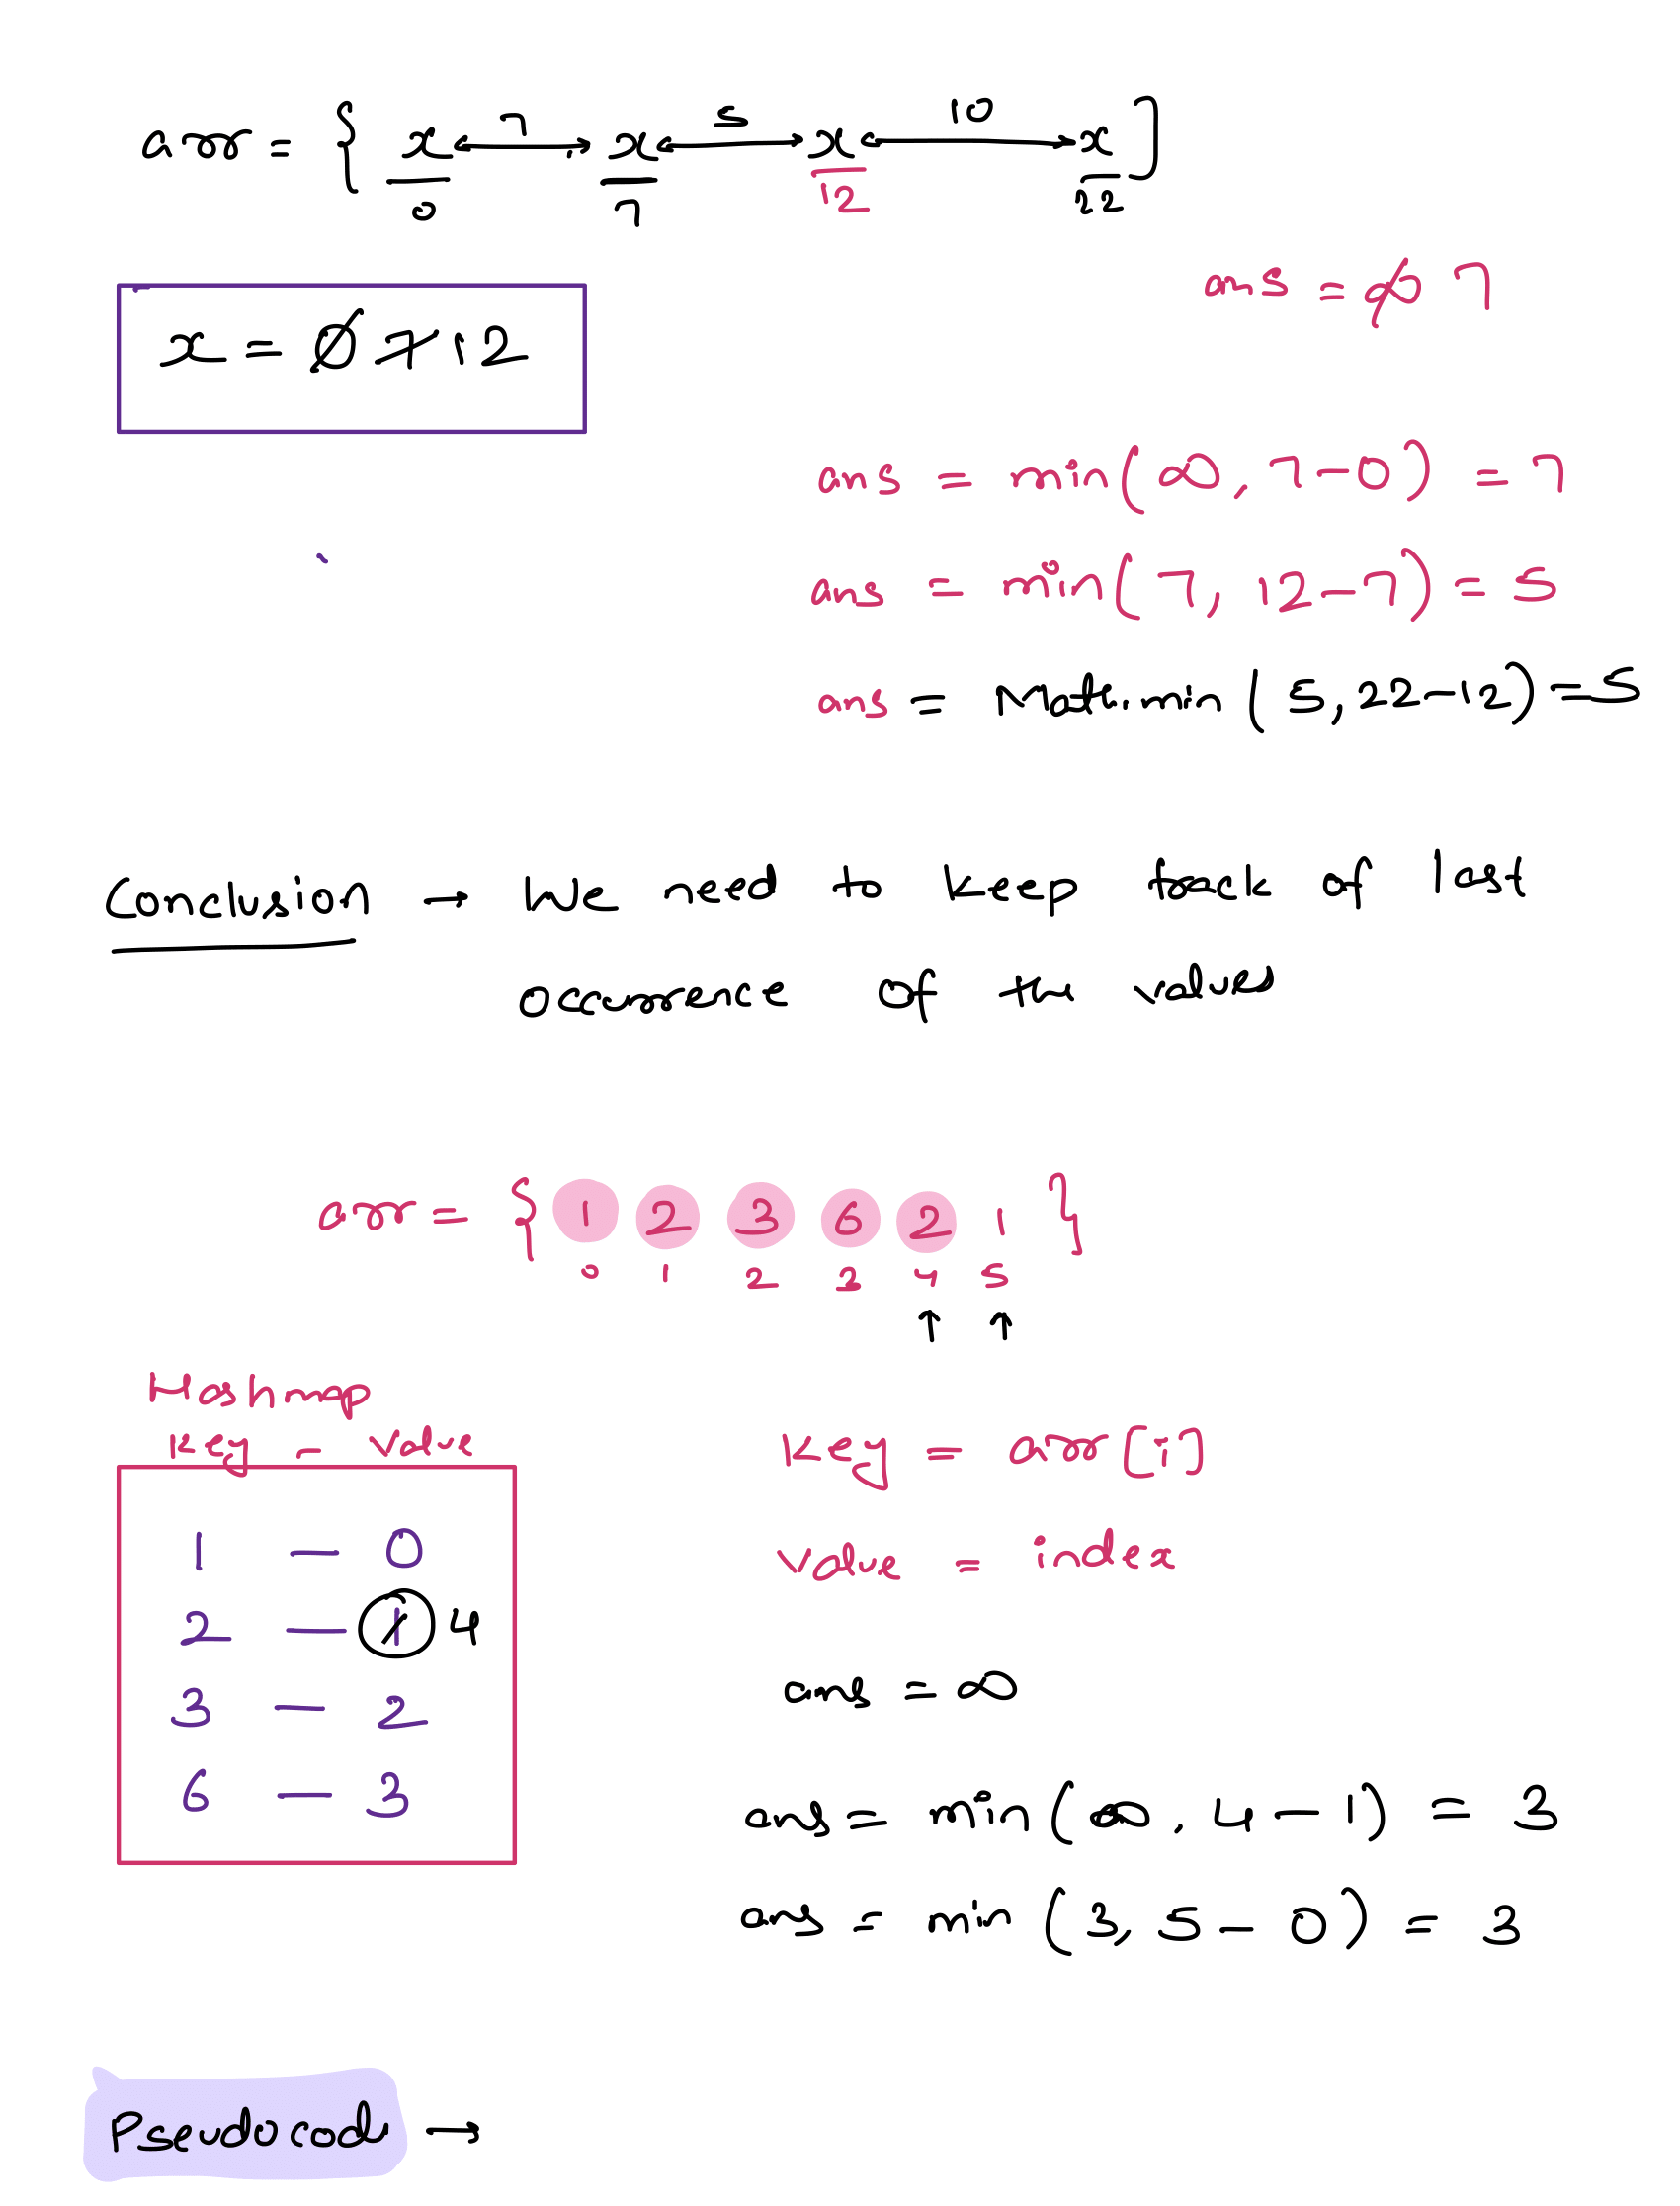 arr = { x 7 x 5 x 10 x ]
0 7 12 22
ans = ∞ 7
x = 0 7 12
ans = min( ∞, 7-0) = 7
ans = min( 7, 12-7) = 5
ans = Math.min ( 5, 22-12) = 5
Conclusion → We need to keep track of last
occurrence of the values
arr = { 1 2 3 6 2 1 }
0 1 2 3 4 5
↑ ↑
Hashmap
Key - Value
1 - 0
2 - 1 4
3 - 2
6 - 3
Key = arr[i]
Value = index
ans = ∞
ans = min (∞, 4-1) = 3
ans = min (3, 5-0) = 3
Pseudocode →